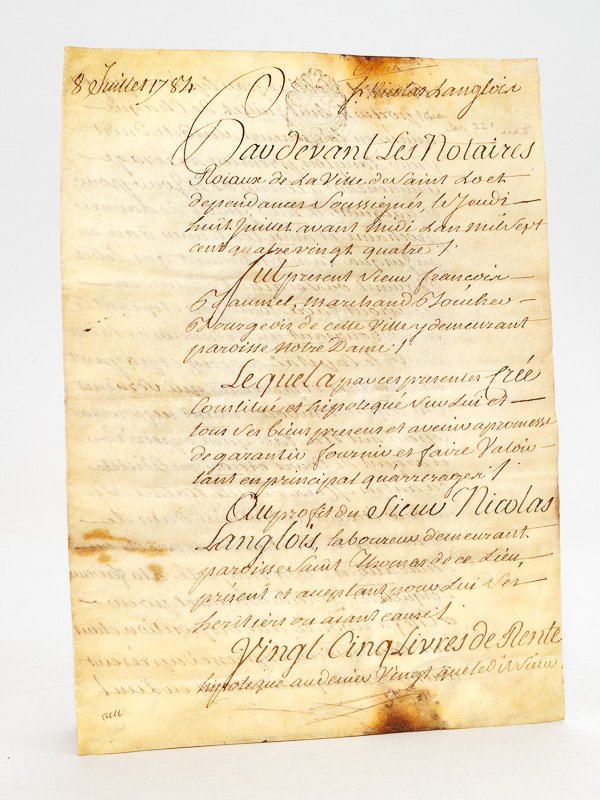 8 Juillet 1784
Sr. Nicolas Langlois
Pardevant Les Notaires
Roiaux de La Ville de Saint Lo et
dependances Soussignés, le Jeudi
huit Juillet avant midi L'an mil Sept
cent quatre vingt quatre /.
Fut present Sieur francois
marchand Boucher
Bourgeois de cette Ville y demeurant
paroisse Notre Dame /.
Lequel a par ces presentes Créé
Constitué et hipotequé Sur Lui et
tous Ses biens presens et avenir a promesse
de garantir fournir et faire Valoir
tant en principal qu'arrerages /.
Au profit du Sieur Nicolas
Langlois, laboureur demeurant
paroisse Saint Thomas de ce Lieu
présent et aceptant pour Lui Ses
heritiers ou aiant cause /.
Vingt Cinq Livres de Rente
hipoteque au denier Vingt que ledit Sieur